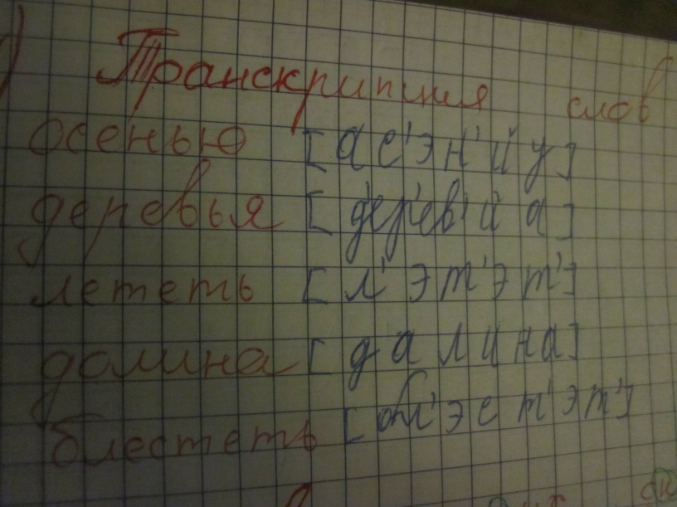 Транскрипция слов
осенью [ас'эн'йу]
деревья [д'ер'ев'йа]
лететь [л'эт'эт']
долина [далина]
блестеть [бл'эст'эт']